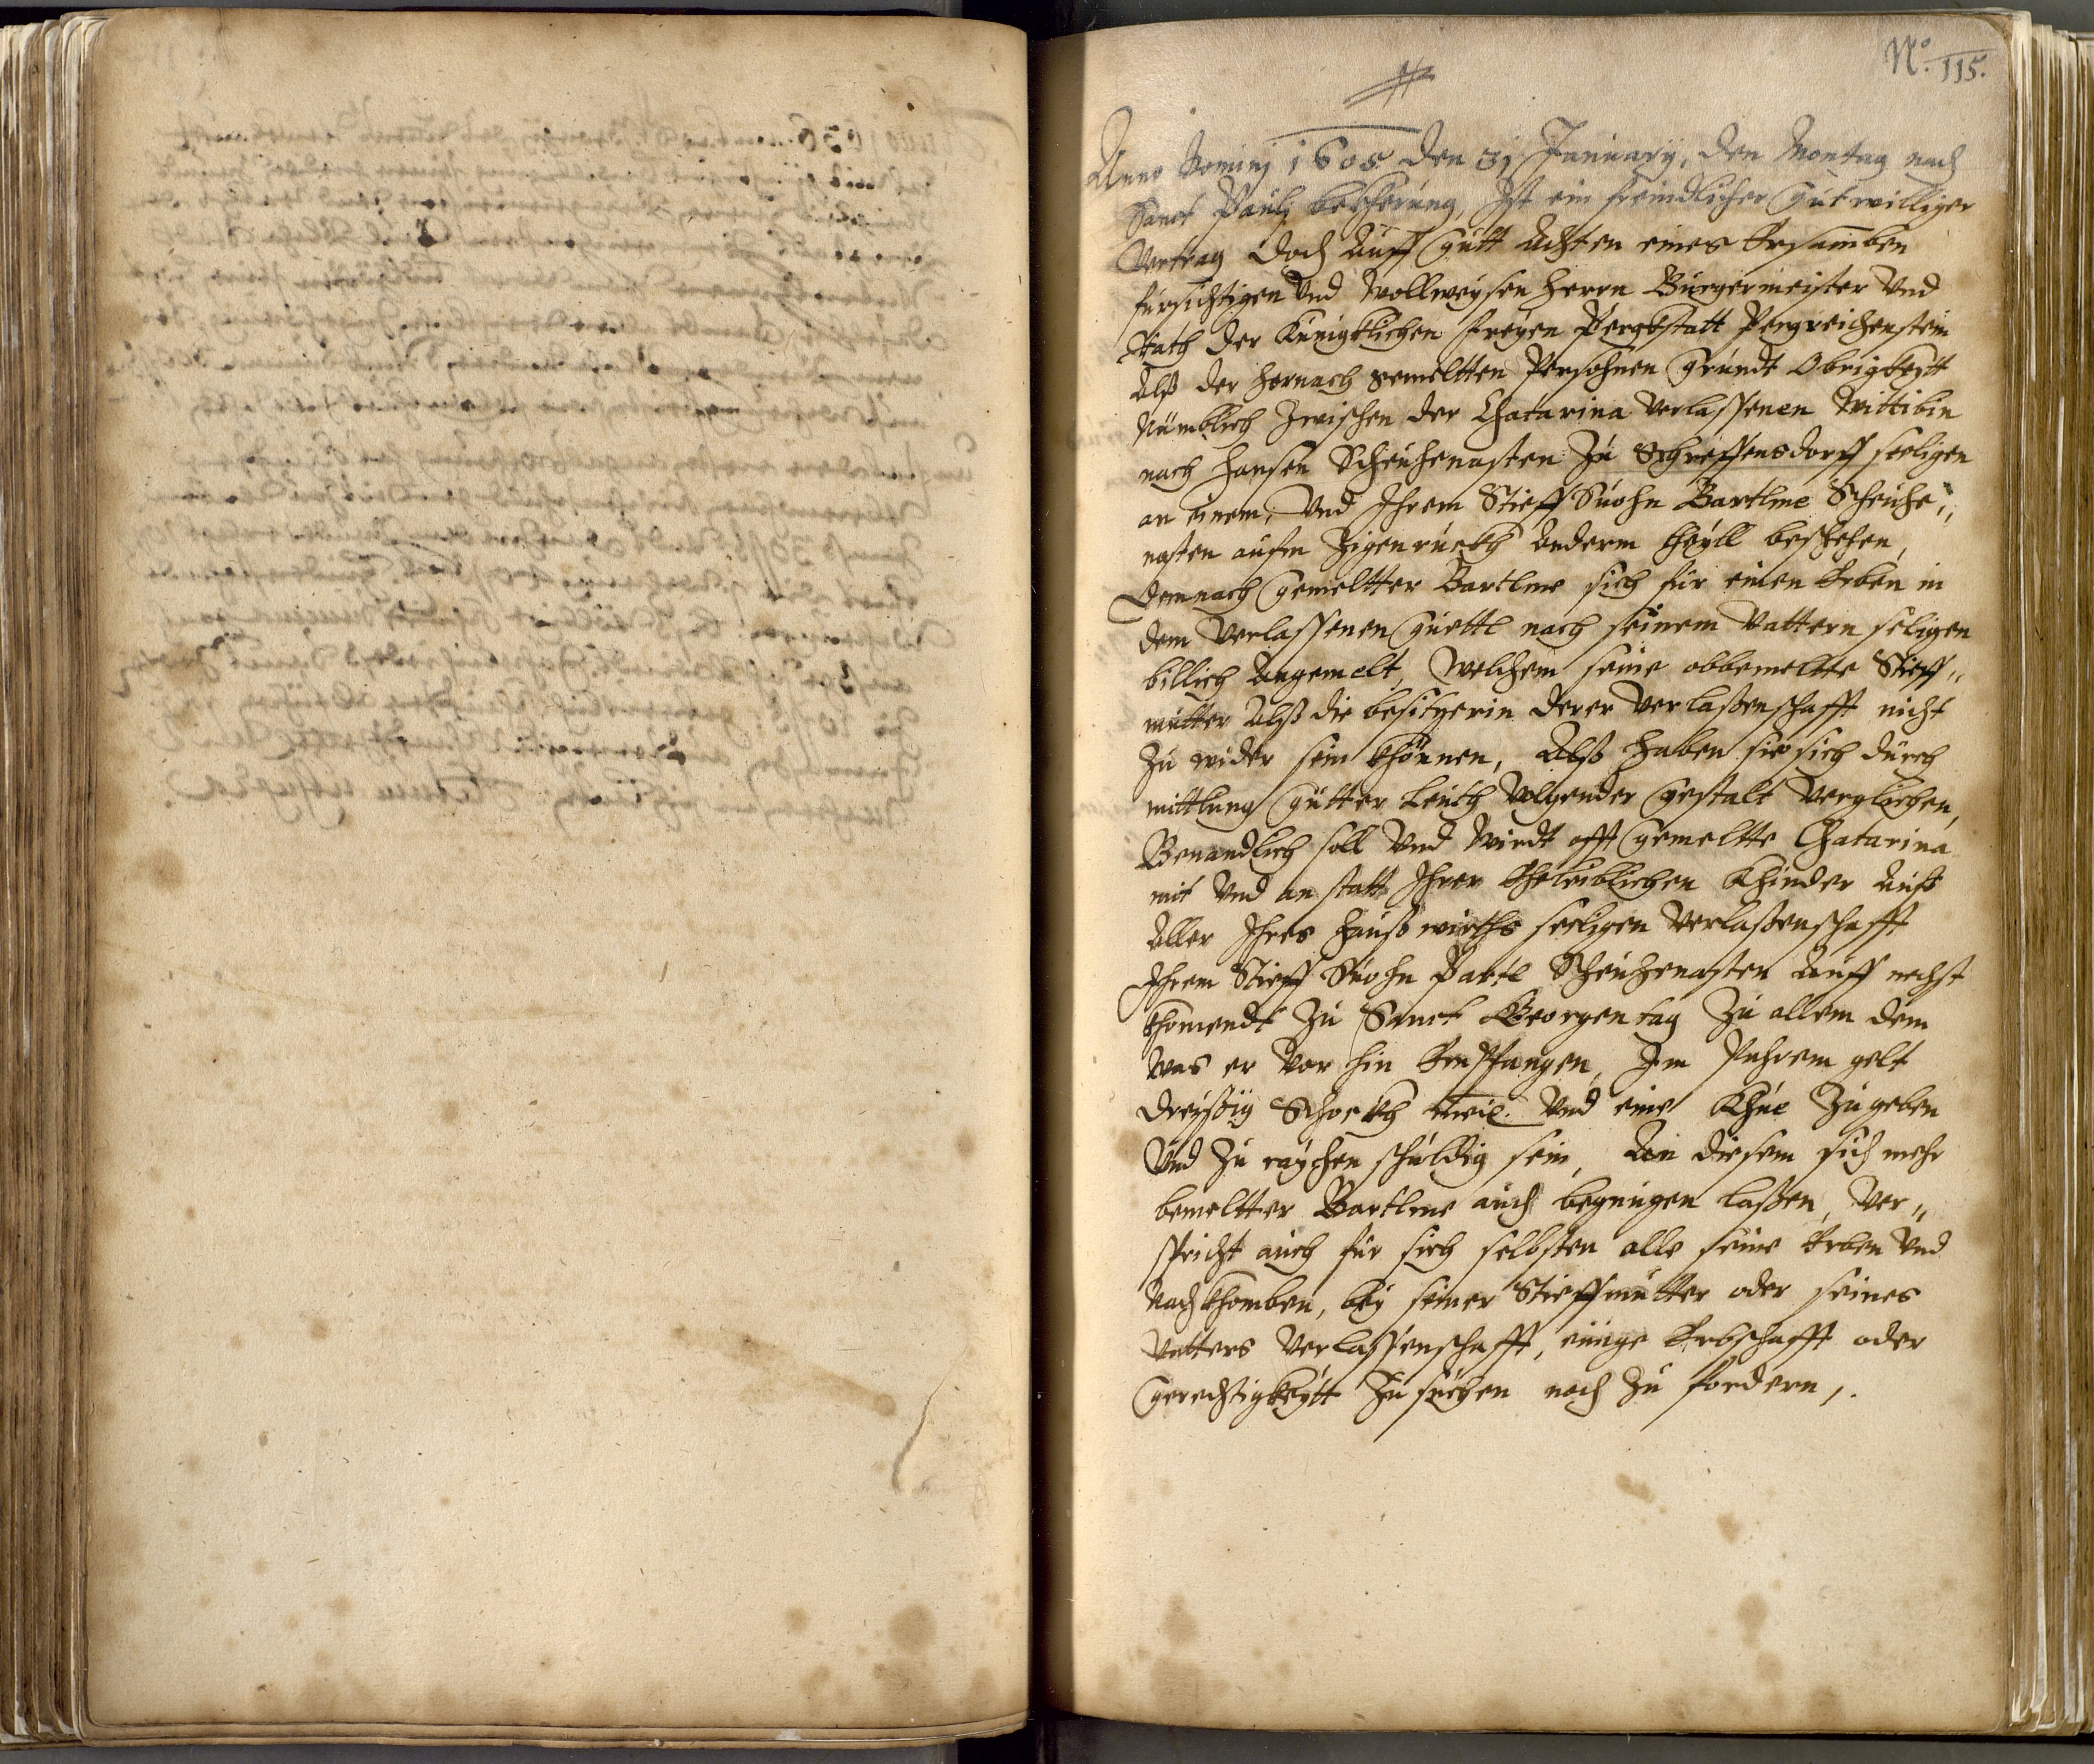 No. 115.
Anno Dominj 1605 den 31 January, den Montag nach
Sanct Paulj bekherung, Ist ein freindlicher Guttwilliger
Vertrag doch auff Gutt achten eines Ersamben
fürsichtigen Vnd Wollweysen Herrn Burgermeister Vnd
Rath der Künigklichen Freyen Pergkstatt Pergreichenstein
Alß der hernach gemeltten Persohnen Grundt Obrigkeytt
Nümblich Zwischen der Chatarina Verlassenen Wittibin
nach Hansen Scheuhenasten Zu Schreffensdorff seeligen
an einem, Vnd Ihrem Stieff Suohn Bartlme Scheuhe„
nasten aufm Zigenruckh Anderm theyll beschehen,
Demnach Gemeltter Bartlme sich für einen Erben in
dem Verlassenen Güettl nach seinem Vattern seligen
billich Angemelt, Welchem seine obbemeltte Stieff„
mutter Alß die besitzerin derer Verlaßenschafft nicht
Zu wider sein khönnen, Alß haben sie sich durch
mittlung Gutter Leuth Volgender Gestalt Verglichen,
Benandlich soll Vnd Wirdt offt Gemeltte Chatarina
mit Vnd an statt Ihrer Eheleiblichen Khinder Auß
Aller Ihres Haußwirths seeligen Verlaßenschafft
Ihrem Stieff Suohn Partl Scheuhenasten Auff nechst
khomendt Zu Sanct Georgentag Zu allem dem
Was er Vor hin Empfangen, Im Pahrem gelt
Dreyßig Schockh meis. Vnd eine Khue Zugeben
Vnd Zu raychen schuldig sein, An diesem sich mehr
bemeltter Bartlme auch begnügen laßen, Ver„
spricht auch für sich selbsten alle seine Erben Vnd
Nachkhomben, bey seiner Stieffmutter oder seines
Vatters Verlassenschafft, einige Erbschafft oder
Gerechtigkeytt Zu suchen noch Zu fordern,.